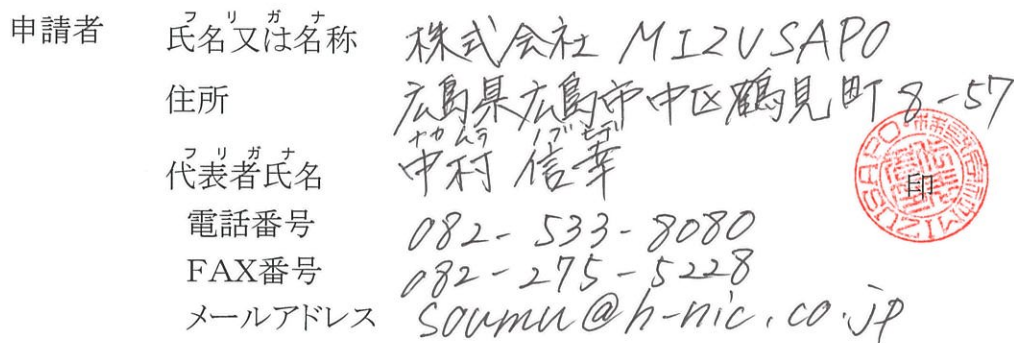 フリガナ
申請者 氏名又は名称 株式会社 MIZUSAPO
住所 広島県広島市中区鶴見町8-57
フリガナ ナカムラ ノブユキ
代表者氏名 中村 信幸
印
電話番号 082-533-8080
FAX番号 082-275-5228
メールアドレス soumu@h-nic.co.jp